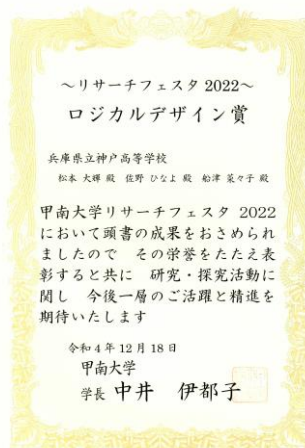 ～リサーチフェスタ 2022～
ロジカルデザイン賞
兵庫県立神戸高等学校
松本 大輝 殿 佐野 ひなよ 殿 船津 菜々子 殿
甲南大学リサーチフェスタ 2022
において頭書の成果をおさめられ
ましたので その栄誉をたたえ表
彰すると共に 研究・探究活動に
関し 今後一層のご活躍と精進を
期待いたします
令和4年12月18日
甲南大学
学長 中井 伊都子